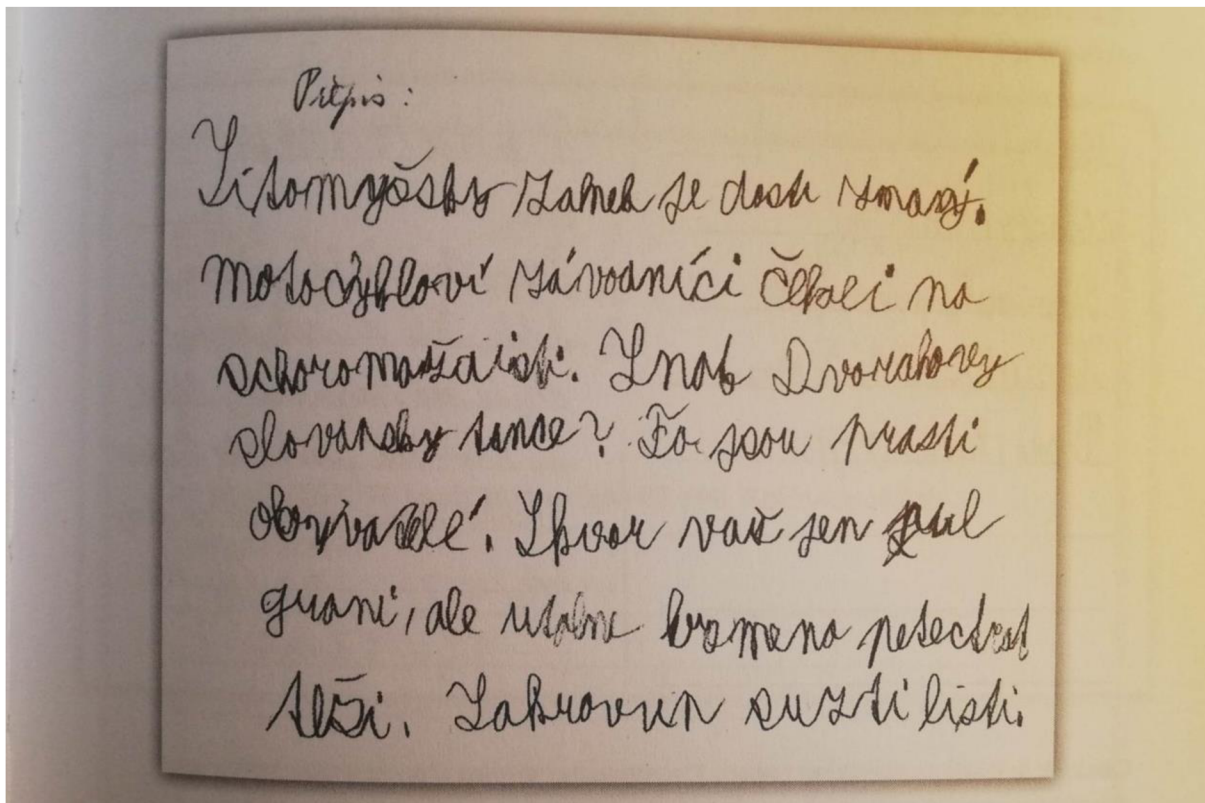 Přepis:
Litomyšsky zamek je dosti znaný.
motocýkloví závodníci čekali na
schoromaždisti. Znab Dvorakovy
slovansky tance? To jsou prasti
obyvatelé. Tkvor važ jen pul
gramı, ale utalne bramena petectrat
těži. Zakrovun su zti listi.